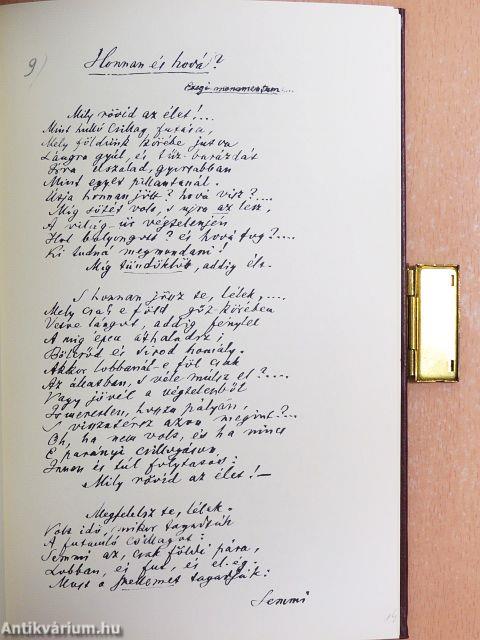 9)
Honnan és hová?
Exegi monumentum....
Mily rövid az élet!....
Mint hulló csillag futása,
Mely földünk körébe jutva
Lángra gyúl, és tűz-barázdát
Írva elszalad, gyorsabban
Mint egyet pillantanál.
Útja honnan jött? hová visz?....
Míg sötét volt, s ujra az lesz,
A világ-űr végtelenjén
Hol bolyongott? és hová fog?....
Ki tudná megmondani!
Míg tündöklött, addig élt.
S honnan jösz te, lélek,....
Mely csak e föld gőz-körében
Vetve lángot, addig fénylel
A míg épen áthaladsz;
Bölcsőd és sírod homály.
Akkor lobbanál-e föl csak
Az állatban, s véle múlsz el?....
Vagy jövél a végtelenből
Ismeretlen, hosszu pályán,
S visszatérsz azon megint?...
Oh, ha nem volt, és ha nincs
E parányi csillogáson
Innen és túl folytatása:
Mily rövid az élet!—
Megfelelsz te, lélek.
Volt idő, mikor tagadtuk
A futamló csillagot:
Semmi az, csak földi pára,
Lobban, és fut, és el-ég.
Most a Szellemet tagadják:
Semmi
14
Antikvárium.hu